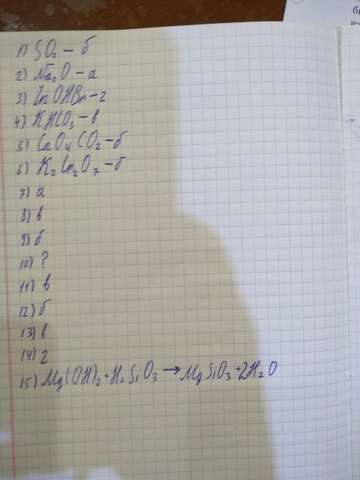 1) SO₂ – б
2) Na₂O – а
3) ZnOHBr – г
4) KHCO₃ – в
5) CaO и CO₂ – б
6) K₂Cr₂O₇ – б
7) а
8) в
9) б
10) ?
11) в
12) б
13) в
14) г
15) Mg(OH)₂ + H₂SiO₃ → MgSiO₃ + 2H₂O